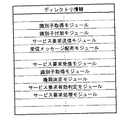 ディレクトリ情報
識別子取得モジュール
識別子付加モジュール
サービス要求送信モジュール
受信メッセージ配布モジュール
サービス要求受信モジュール
識別子取得モジュール
機能決定モジュール
サービス要求有効判定モジュール
サービス要求処理モジュール